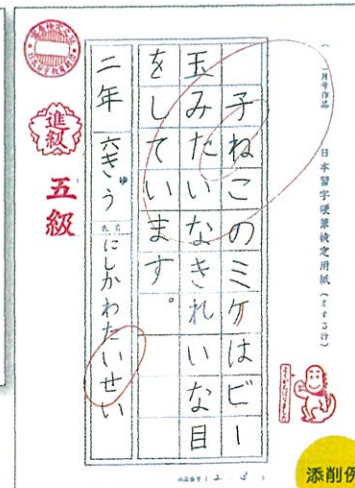 ( )月号作品 日本習字硬筆検定用紙(まする行)
子ねこのミケはビー
玉みたいなきれいな目
をしています。
二年 六きゅう 氏名 にしかわたいせい
進級
五級
添削例